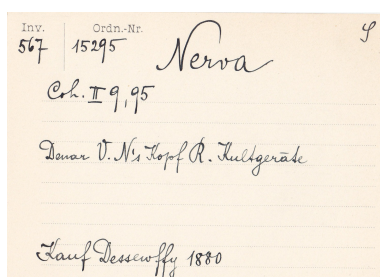 Inv. Ordn.-Nr.
567 15295 Nerva
Coh. II 9,95
Denar V. N's Kopf R. Kultgeräte
Kauf Dessewffy 1880